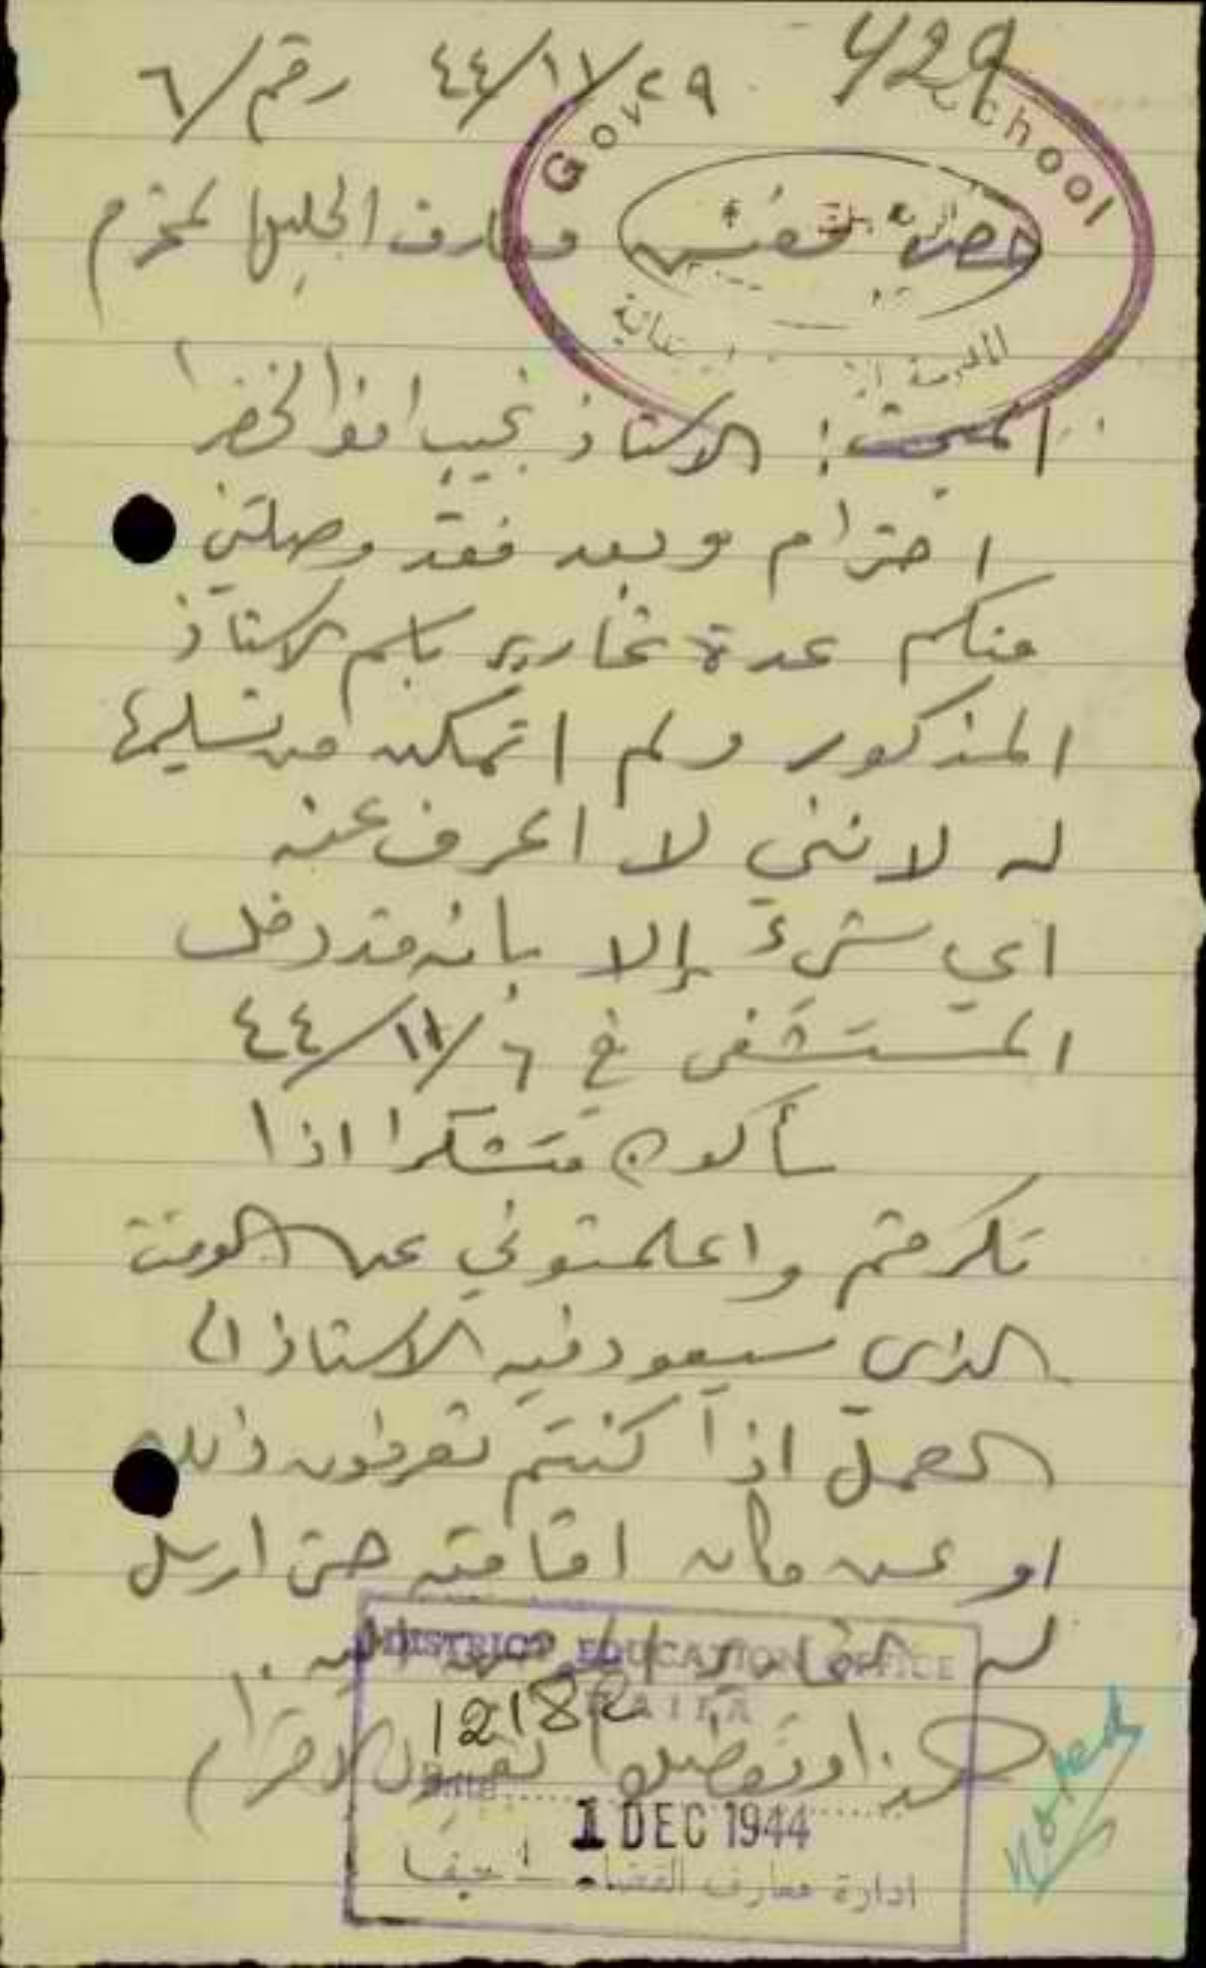 429
رقم/٦ ٤٤/١١/٢٩
Gov School
حضرة مفتش معارف الجليل المحترم
المبحث: الاستاذ نجيب ابو الخضرا
احترام وبعد فقد وصلتني
منكم عدة تحارير باسم الاستاذ
المذكور ولم اتمكن من تسليمها
له لانني لا اعرف عنه
اي شيء إلا بانه قد دخل
المستشفى في ٦/١١/٤٤
سأكون متشكرا اذا
تكرمتم واعلمتوني عن الوقت
الذي سيعود فيه الاستاذ الى
العمل اذا كنتم تعرفون ذلك
او عن مكان اقامته حتى ارسل
له التحارير
هذا وتفضلوا بقبول الاحترام
DISTRICT EDUCATION OFFICE
HAIFA
1218
Date
1 DEC 1944
ادارة معارف القضاء حيفا
Noted